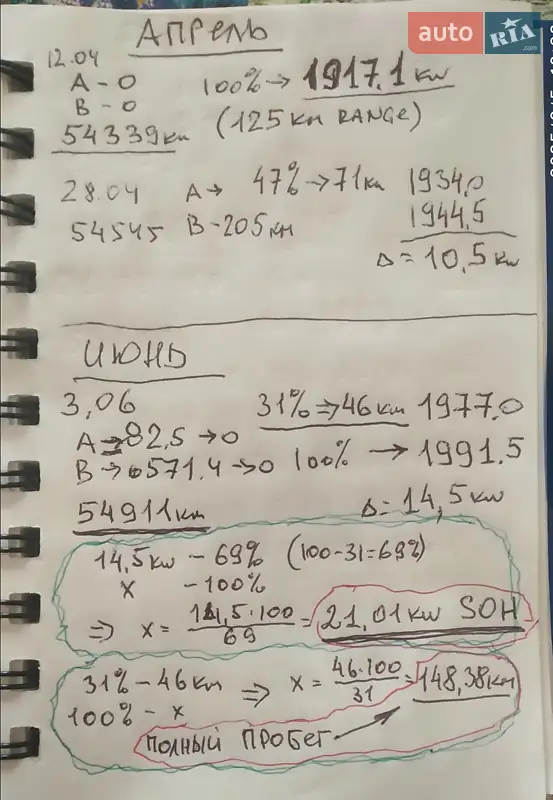 auto RIA.com
АПРЕЛЬ
12.04
A - 0 100% → 1917.1 kw
B - 0
54339 км (125 км RANGE)
28.04 A → 47% → 71 км 1934,0
54545 B - 205 км 1944,5
Δ = 10,5 kw
ИЮНЬ
3,06 31% ⇒ 46 км 1977.0
A → 82,5 → 0
B → 571.4 → 0 100% → 1991.5
54911 км Δ = 14,5 kw
14,5 kw - 69% (100-31=69%)
x - 100%
⇒ x = 14,5·100/69 = 21,01 kw SOH
31% - 46 км ⇒ x = 46·100/31 = 148,38 км
100% - x
ПОЛНЫЙ ПРОБЕГ